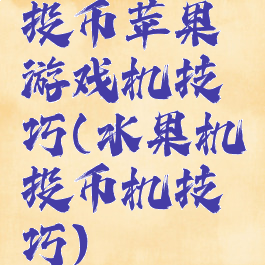 投币苹果
游戏机技
巧(水果机
投币机技
巧)